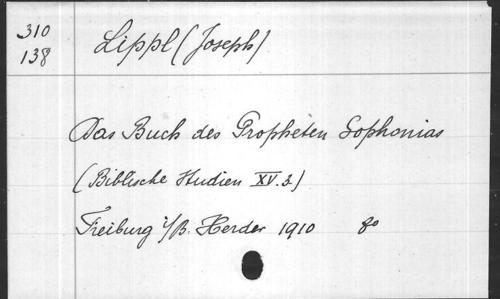 310
138
Lippl (Joseph)
Das Buch des Propheten Sophonias
(Biblische Studien XV. 3)
Freiburg i/B. Herder 1910 8o